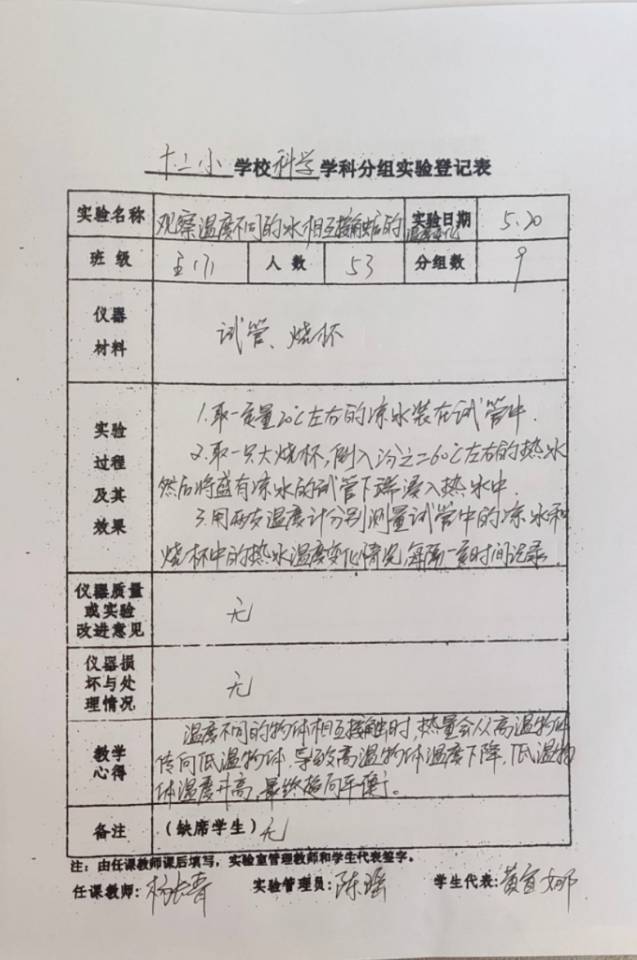 十二小学校科学学科分组实验登记表
实验名称 观察温度不同的水相互接触后的温度变化 实验日期 5.20
班级 五(1) 人数 53 分组数 9
仪器材料 试管、烧杯
实验过程及其效果
1.取一定量20℃左右的凉水装在试管中.
2.取一只大烧杯,倒入三分之二60℃左右的热水
然后将盛有凉水的试管下端浸入热水中.
3.用两支温度计分别测量试管中的凉水和
烧杯中的热水温度变化情况,每隔一定时间记录.
仪器质量或实验改进意见 无
仪器损坏与处理情况 无
教学心得
温度不同的物体相互接触时,热量会从高温物体
传向低温物体,导致高温物体温度下降,低温物
体温度升高,最终趋向平衡。
备注 (缺席学生) 无
注:由任课教师课后填写,实验室管理教师和学生代表签字。
任课教师: 实验管理员:陈瑶 学生代表:黄